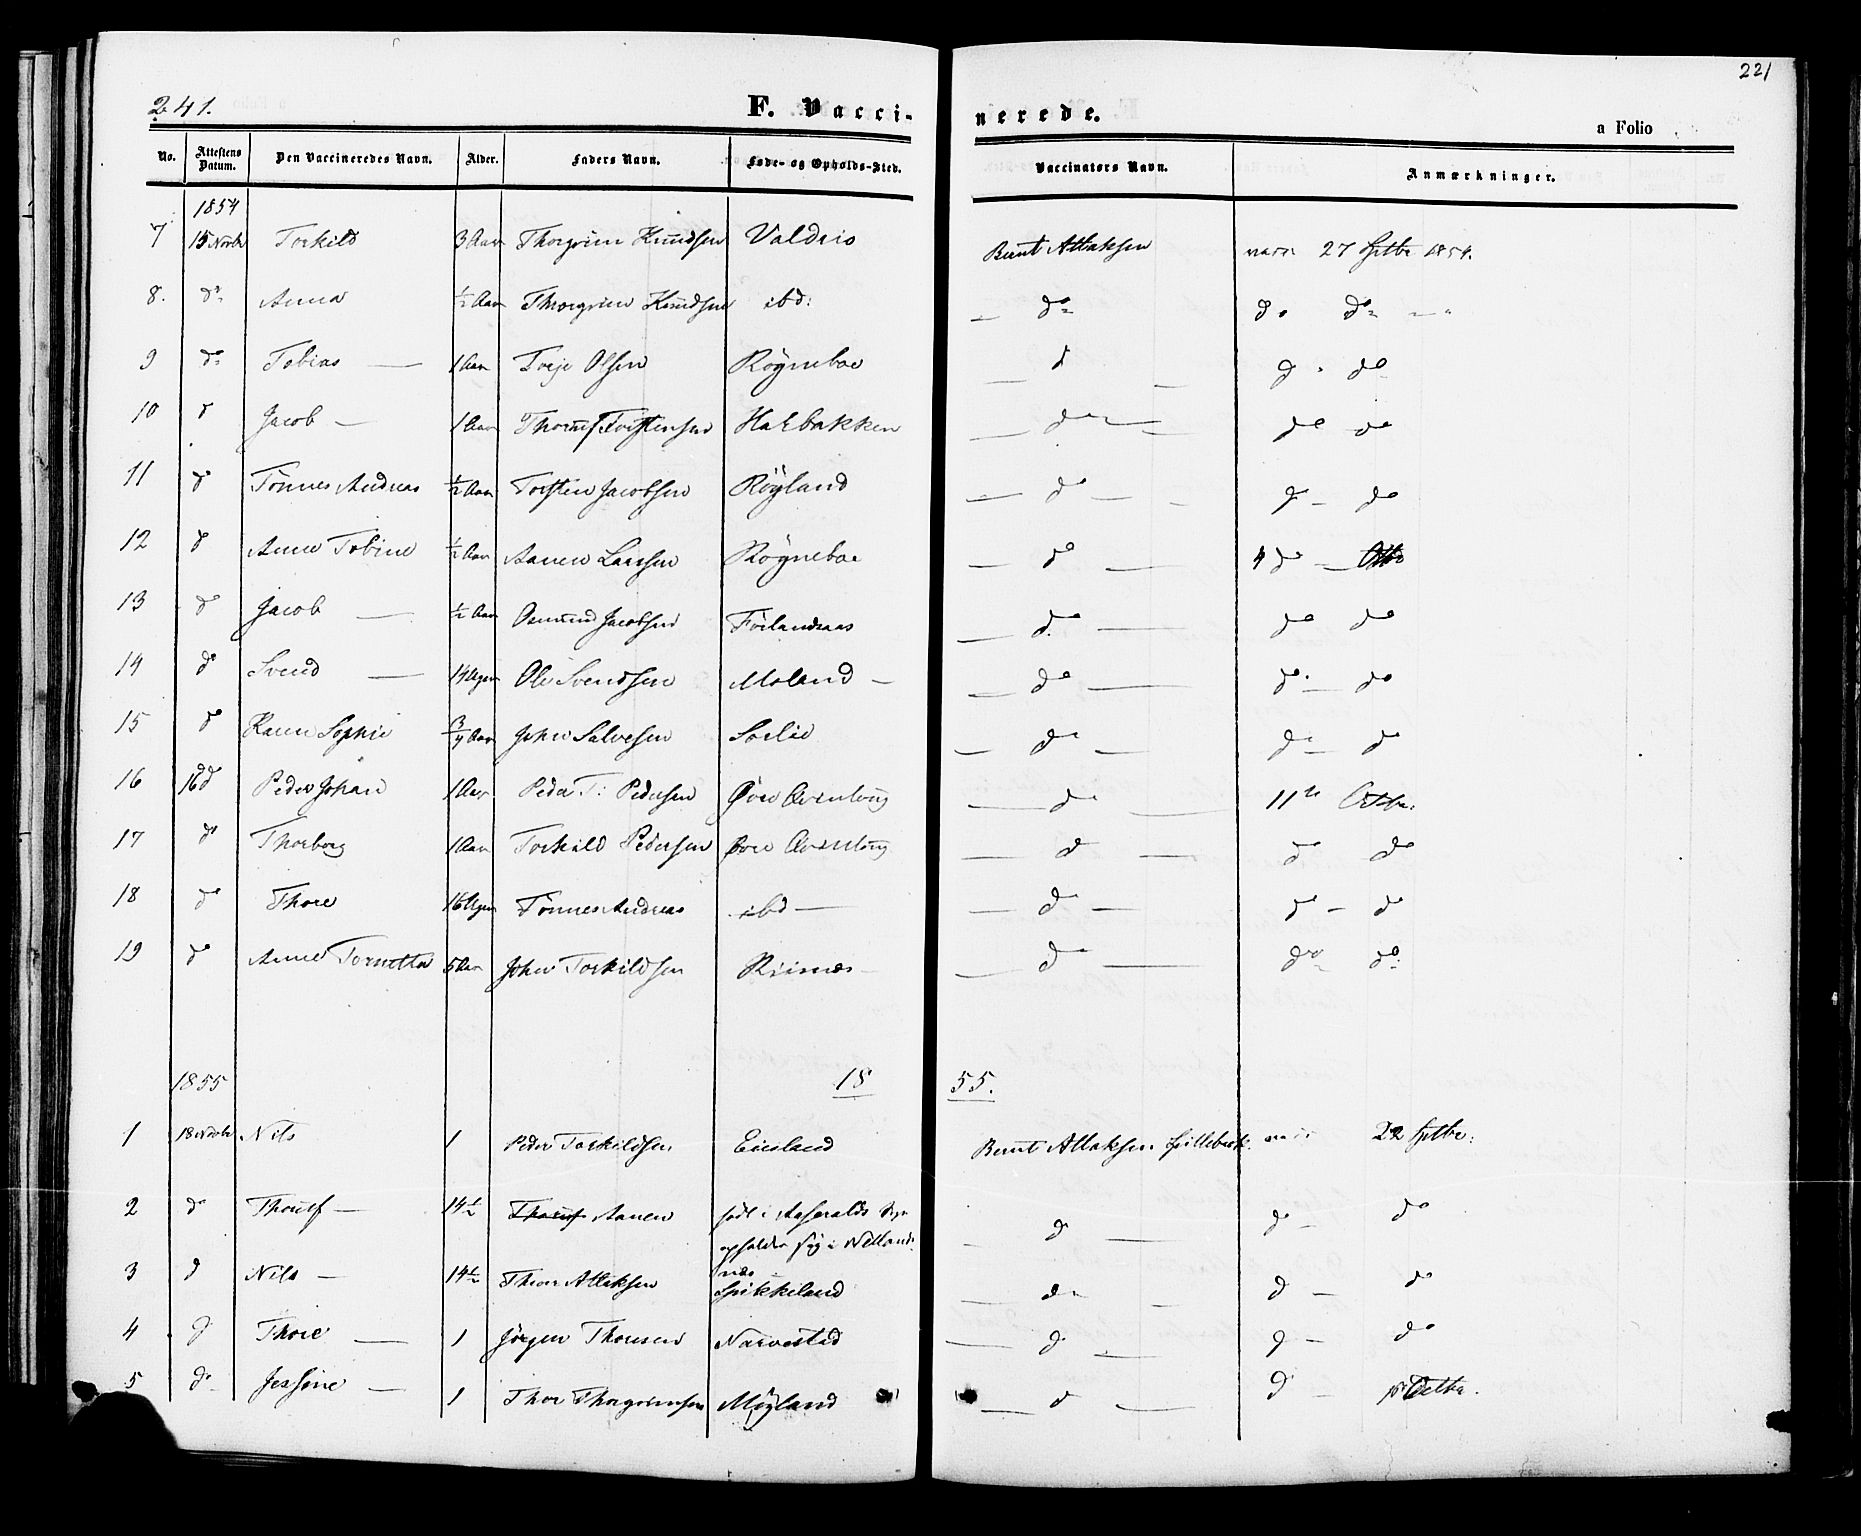 241.
221
F. Vacci-
nerede.
a Folio
No. Attestens Datum. Den Vaccineredes Navn. Alder. Faders Navn. Føde- og Opholds-Sted. Vaccinators Navn. Anmærkninger.
1854
7 15 Novbr Torkild 3 Aar Thorgrim Knudsen Valdris Bernt Atlaksen vacc. 27 Sptbr 1854.
8. do Anna ½ Aar Thorgrim Knudsen ibd: — do do do
9 do Tobias — 1 Aar Terje Olsen Røgneboe — d — d do
10 d Jacob — 1 Aar Thorulf Torstensen Hakbakken — do — do do
11 do Tönnes Andreas ½ Aar Torsten Jacobsen Röyland — do — d — do
12 do Anne Tobine ½ Aar Aanen Larssen Rögneboe — do — 4 do — Otbr
13 do Jacob — ½ Aar Osmund Jacobsen Förlandsaas — do — do do
14 do Svend — 14 Uger Ole Svendsen Moland — — do — do — do
15 do Karen Sophie 3/4 Aar John Salvesen Sorlie — do — do — do
16 16 d Peder Johan 1 Aar Peder T: Pedersen Øvre Øvenlöug — do — 11te Octbr.
17 do Thorborg 1 Aar Torkild Pedersen Øvre Øvenlöug — d — do do
18 do Thore 16 Uger Tönnes Andreas ibd — — do — do — do
19 do Anne Tornetta 5 Aar John Torkildsen Risnes — do — do do
1855
18
55.
1 18 Novbr Nils 1 Peder Torkildsen Eiesland Bernt Atlaksen vacc 22 Sptbr:
2 do Thorulf — 14½ Thorulf Aanen född i Aaseralds
opholder sig i Netland-
næs — d — do — do
3 d Nils — 14½ Thore Atlaksen Spikkeland — do — d — do
4 d Thore — 1 Jörgen Thoresen Narvestad — d — d — do
5 do Jessine — 1 Thor Thorgrimsen Möyland — d — d — Octbr.